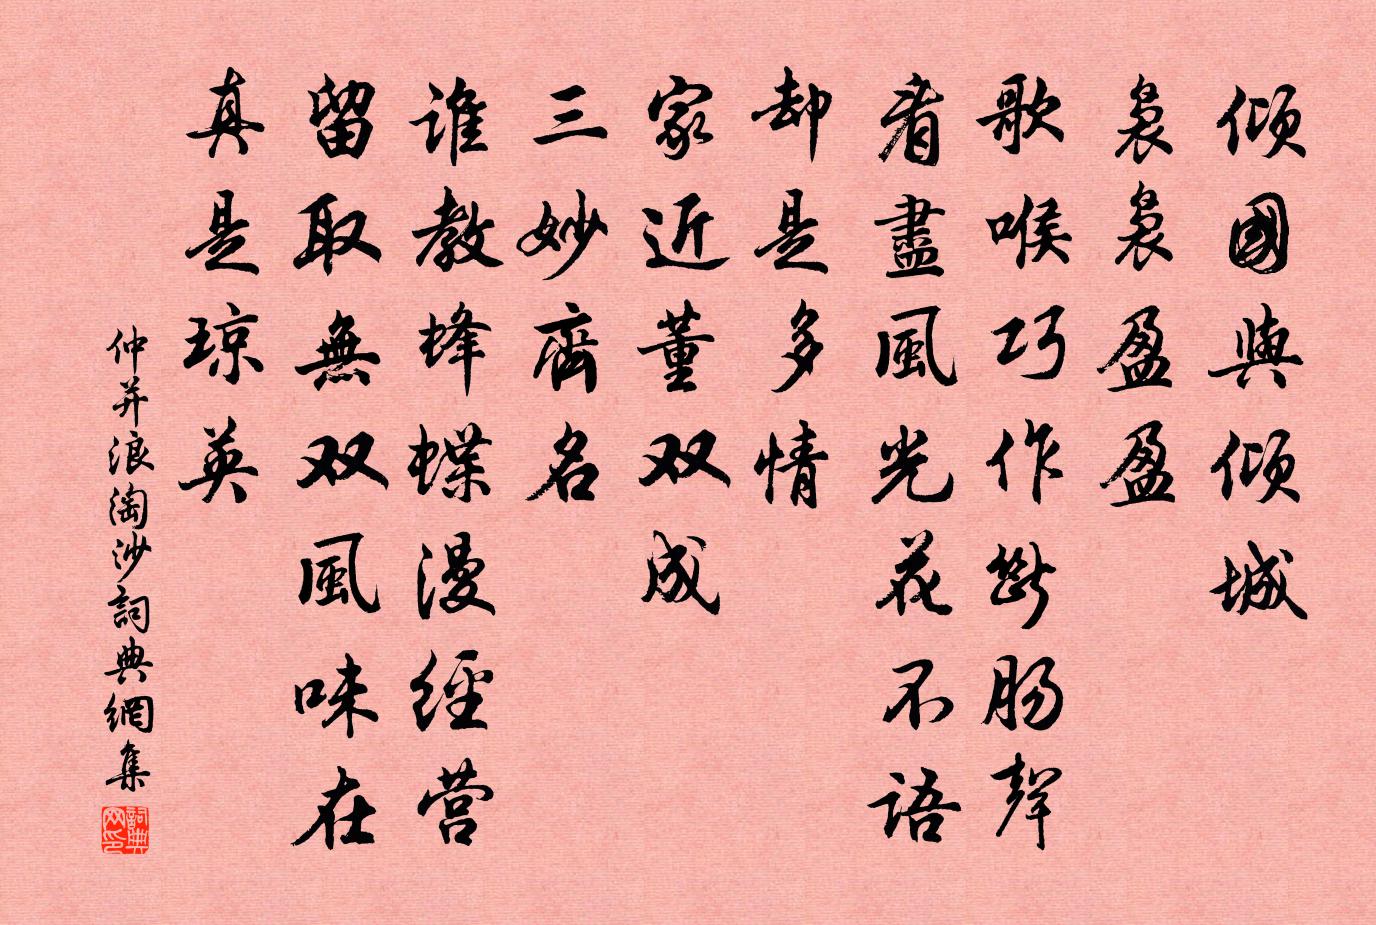 傾國與傾城
裊裊盈盈
歌喉巧作斷腸聲
看盡風光花不語
却是多情
家近董双成
三妙齊名
誰教蜂蝶漫經营
留取無双風味在
真是琼英
仲并浪淘沙詞典網集
詞典网印